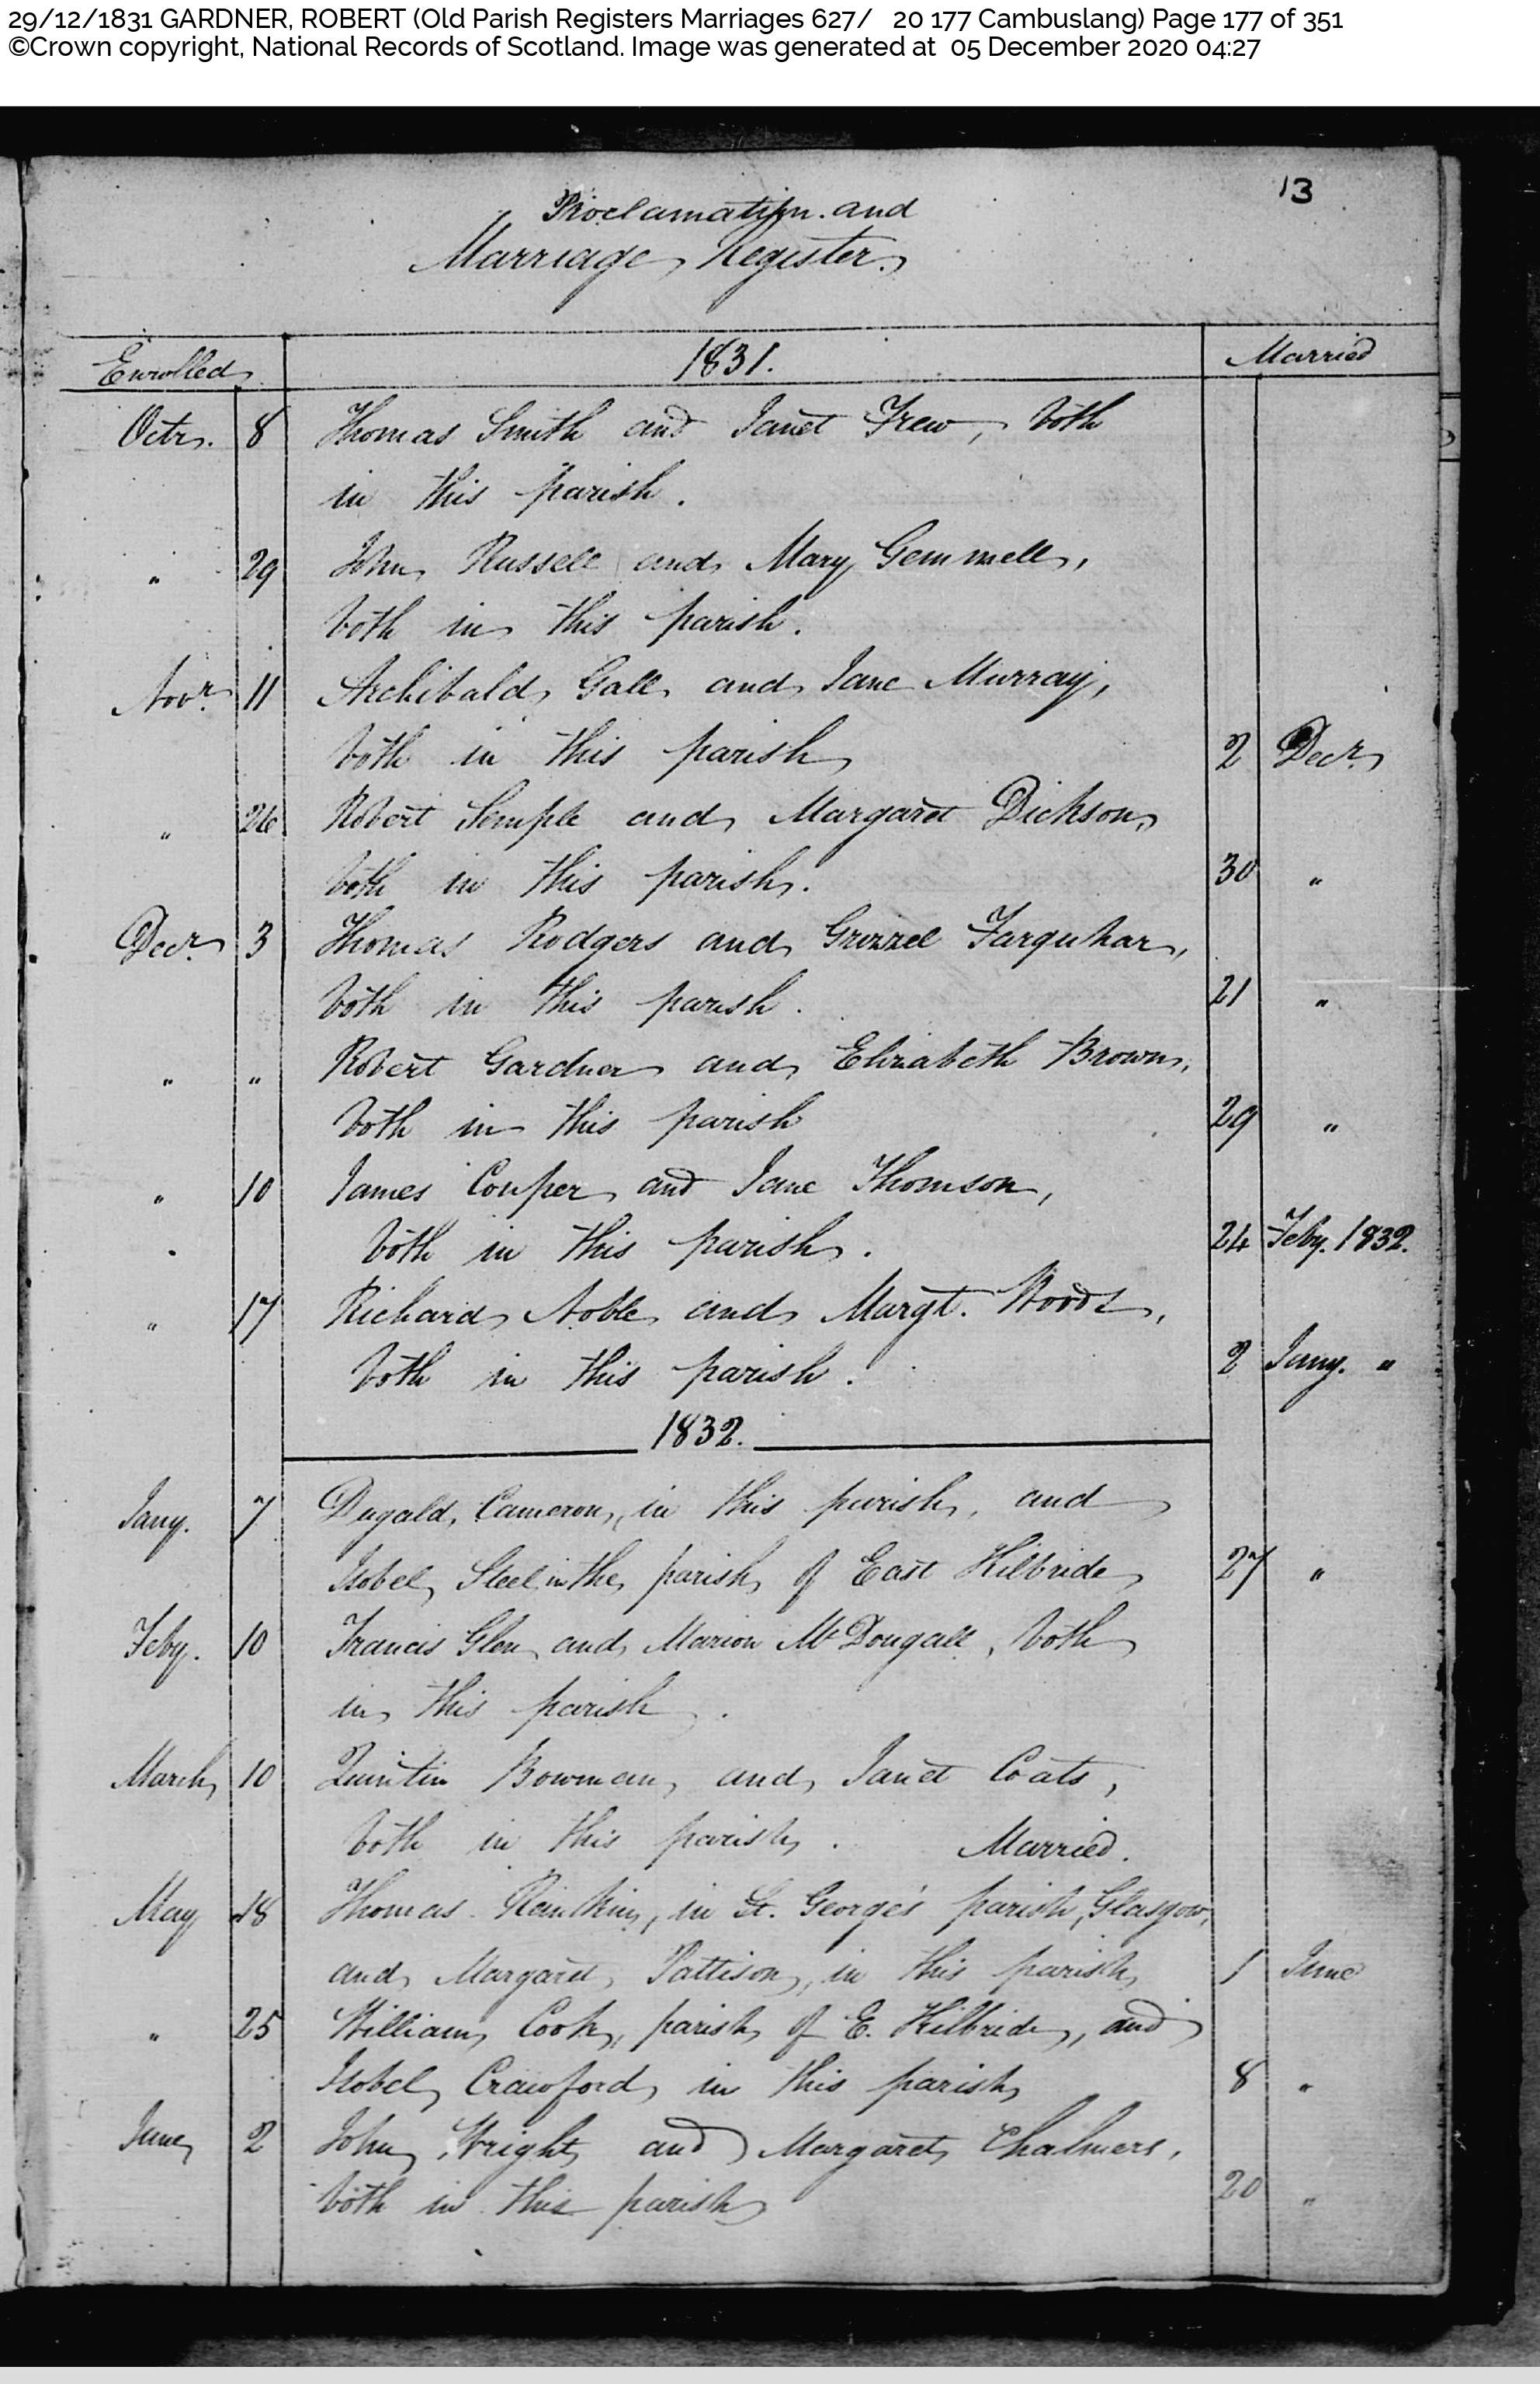 29/12/1831 GARDNER, ROBERT (Old Parish Registers Marriages 627/ 20 177 Cambuslang) Page 177 of 351
©Crown copyright, National Records of Scotland. Image was generated at 05 December 2020 04:27
13
Proclamation and
Marriage Register
Enrolled 1831. Married
Octr. 8 Thomas Smith and Janet Frew, both
in this parish.
" 29 John Russell and Mary Gemmell,
both in this parish.
Novr. 11 Archibald Gall and Jane Murray,
both in this parish 2 Decr.
" 26 Robert Semple and Margaret Dickson,
both in this parish. 30 "
Decr. 3 Thomas Rodgers and Grizzel Farquhar,
both in this parish. 21 "
" " Robert Gardner and Elizabeth Brown,
both in this parish 29 "
" 10 James Couper and Jane Thomson,
both in this parish. 24 Feby. 1832.
" 17 Richard Noble and Margt. Woods,
both in this parish. 2 Jany. "
1832.
Jany. 7 Dugald Cameron, in this parish, and
Isobel Steel in the parish of East Kilbride 27 "
Feby. 10 Francis Glen and Marion McDougall, both
in this parish.
March 10 Quintin Bowman and Janet Coats,
both in this parish. Married.
May 18 Thomas Rankin, in St. George's parish, Glasgow,
and Margaret Pattison, in this parish 1 June
" 25 William Cook, parish of E. Kilbride, and
Isobel Crawford in this parish 8 "
June 2 John Wright and Margaret Chalmers,
both in this parish 20 "